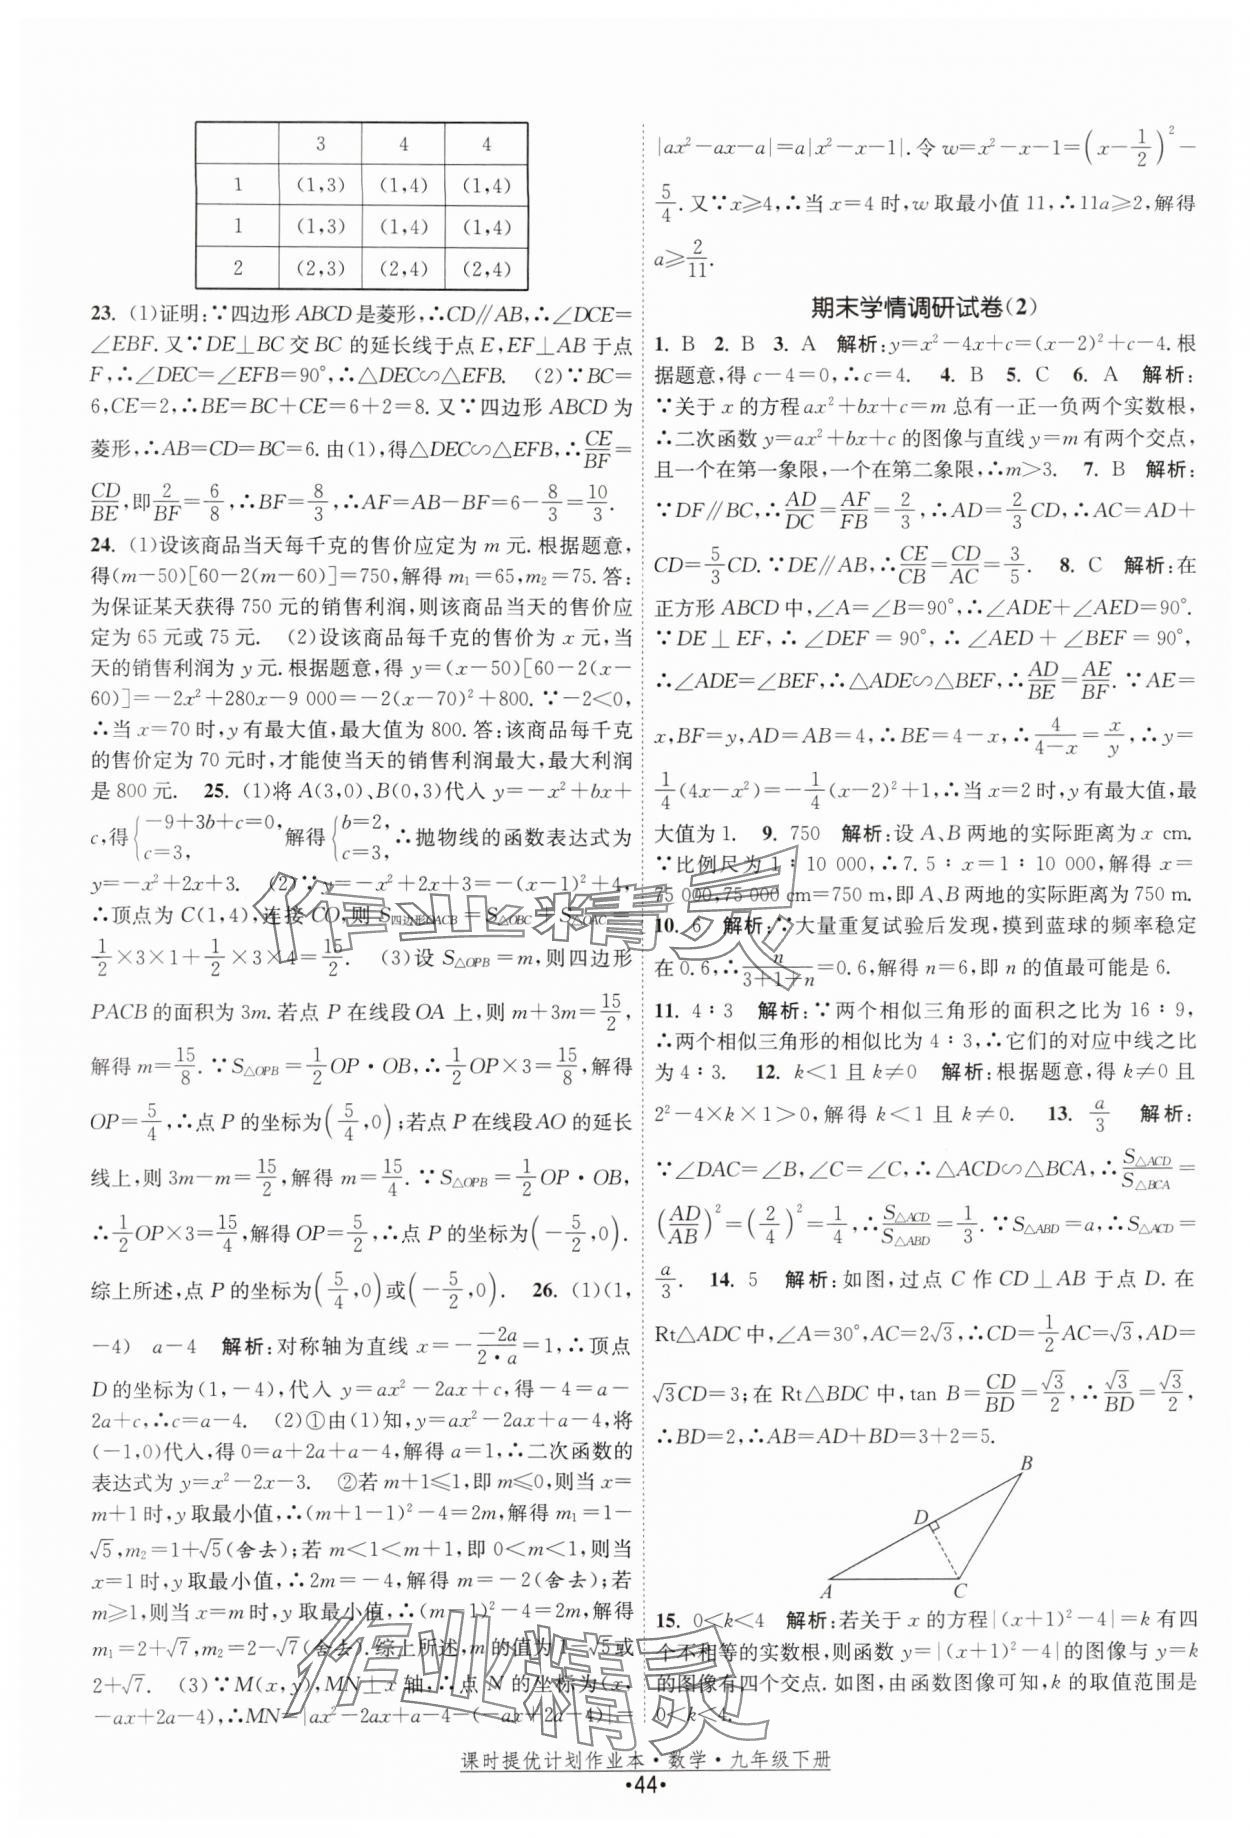 3 4 4
1 (1,3) (1,4) (1,4)
1 (1,3) (1,4) (1,4)
2 (2,3) (2,4) (2,4)
23. (1)证明:∵四边形 ABCD 是菱形,∴CD∥AB,∴∠DCE=
∠EBF. 又∵DE⊥BC 交 BC 的延长线于点 E,EF⊥AB 于点
F,∴∠DEC=∠EFB=90°,∴△DEC∽△EFB. (2)∵BC=
6,CE=2,∴BE=BC+CE=6+2=8. 又∵四边形 ABCD 为
菱形,∴AB=CD=BC=6. 由(1),得△DEC∽△EFB,∴CE/BF=
CD/BE,即2/BF=6/8,∴BF=8/3,∴AF=AB-BF=6-8/3=10/3.
24. (1)设该商品当天每千克的售价应定为 m 元. 根据题意,
得(m-50)[60-2(m-60)]=750,解得 m₁=65,m₂=75. 答:
为保证某天获得 750 元的销售利润,则该商品当天的售价应
定为 65 元或 75 元. (2)设该商品每千克的售价为 x 元,当
天的销售利润为 y 元. 根据题意,得 y=(x-50)[60-2(x-
60)]=-2x²+280x-9 000=-2(x-70)²+800. ∵-2<0,
∴当 x=70 时,y 有最大值,最大值为 800. 答:该商品每千克
的售价定为 70 元时,才能使当天的销售利润最大,最大利润
是 800 元. 25. (1)将 A(3,0)、B(0,3)代入 y=-x²+bx+
c,得{-9+3b+c=0, c=3, 解得{b=2, c=3, ∴抛物线的函数表达式为
y=-x²+2x+3. (2)∵y=-x²+2x+3=-(x-1)²+4,
∴顶点为 C(1,4),连接 CO,则 S四边形OACB=S△OBC+S△OAC=
1/2×3×1+1/2×3×4=15/2. (3)设 S△OPB=m,则四边形
PACB 的面积为 3m. 若点 P 在线段 OA 上,则 m+3m=15/2,
解得 m=15/8. ∵S△OPB=1/2OP·OB,∴1/2OP×3=15/8,解得
OP=5/4,∴点 P 的坐标为(5/4,0);若点 P 在线段 AO 的延长
线上,则 3m-m=15/2,解得 m=15/4. ∵S△OPB=1/2OP·OB,
∴1/2OP×3=15/4,解得 OP=5/2,∴点 P 的坐标为(-5/2,0).
综上所述,点 P 的坐标为(5/4,0)或(-5/2,0). 26. (1)(1,
-4) a-4 解析:对称轴为直线 x=-(-2a)/(2·a)=1,∴顶点
D 的坐标为(1,-4),代入 y=ax²-2ax+c,得-4=a-
2a+c,∴c=a-4. (2)①由(1)知,y=ax²-2ax+a-4,将
(-1,0)代入,得 0=a+2a+a-4,解得 a=1,∴二次函数的
表达式为 y=x²-2x-3. ②若 m+1≤1,即 m≤0,则当 x=
m+1 时,y 取最小值,∴(m+1-1)²-4=2m,解得 m₁=1-
√5,m₂=1+√5(舍去);若 m<1<m+1,即 0<m<1,则当
x=1 时,y 取最小值,∴2m=-4,解得 m=-2(舍去);若
m≥1,则当 x=m 时,y 取最小值,∴(m-1)²-4=2m,解得
m₁=2+√7,m₂=2-√7(舍去). 综上所述,m 的值为 1-√5或
2+√7. (3)∵M(x,y),MN⊥x 轴,∴点 N 的坐标为(x,
-ax+2a-4),∴MN=|ax²-2ax+a-4-(-ax+2a-4)|=
|ax²-ax-a|=a|x²-x-1|. 令 w=x²-x-1=(x-1/2)²-
5/4. 又∵x≥4,∴当 x=4 时,w 取最小值 11,∴11a≥2,解得
a≥2/11.
期末学情调研试卷(2)
1. B 2. B 3. A 解析:y=x²-4x+c=(x-2)²+c-4. 根
据题意,得 c-4=0,∴c=4. 4. B 5. C 6. A 解析:
∵关于 x 的方程 ax²+bx+c=m 总有一正一负两个实数根,
∴二次函数 y=ax²+bx+c 的图像与直线 y=m 有两个交点,
且一个在第一象限,一个在第二象限,∴m>3. 7. B 解析:
∵DF∥BC,∴AD/DC=AF/FB=2/3,∴AD=2/3CD,∴AC=AD+
CD=5/3CD. ∵DE∥AB,∴CE/CB=CD/AC=3/5. 8. C 解析:在
正方形 ABCD 中,∠A=∠B=90°,∴∠ADE+∠AED=90°.
∵DE⊥EF,∴∠DEF=90°,∴∠AED+∠BEF=90°,
∴∠ADE=∠BEF,∴△ADE∽△BEF,∴AD/BE=AE/BF. ∵AE=
x,BF=y,AD=AB=4,∴BE=4-x,∴4/(4-x)=x/y,∴y=
1/4(4x-x²)=-1/4(x-2)²+1,∴当 x=2 时,y 有最大值,最
大值为 1. 9. 750 解析:设 A、B 两地的实际距离为 x cm.
∵比例尺为 1∶10 000,∴7.5∶x=1∶10 000,解得 x=
75 000,75 000 cm=750 m,即 A、B 两地的实际距离为 750 m.
10. 6 解析:∵大量重复试验后发现,摸到蓝球的频率稳定
在 0.6,∴n/(3+1+n)=0.6,解得 n=6,即 n 的值最可能是 6.
11. 4∶3 解析:∵两个相似三角形的面积之比为 16∶9,
∴两个相似三角形的相似比为 4∶3,∴它们的对应中线之比
为 4∶3. 12. k<1 且 k≠0 解析:根据题意,得 k≠0 且
2²-4×k×1>0,解得 k<1 且 k≠0. 13. a/3 解析:
∵∠DAC=∠B,∠C=∠C,∴△ACD∽△BCA,∴S△ACD/S△BCA=
(AD/AB)²=(2/4)²=1/4,∴S△ACD/S△ABD=1/3. ∵S△ABD=a,∴S△ACD=
a/3. 14. 5 解析:如图,过点 C 作 CD⊥AB 于点 D. 在
Rt△ADC 中,∠A=30°,AC=2√3,∴CD=1/2AC=√3,AD=
√3CD=3;在 Rt△BDC 中,tan B=CD/BD=√3/2,∴√3/BD=√3/2,
∴BD=2,∴AB=AD+BD=3+2=5.
B
D
A C
15. 0<k<4 解析:若关于 x 的方程|(x+1)²-4|=k 有四
个不相等的实数根,则函数 y=|(x+1)²-4|的图像与 y=k
的图像有四个交点. 如图,由函数图像可知,k 的取值范围是
0<k<4.
作业精灵
作业精灵
课时提优计划作业本·数学·九年级下册
·44·